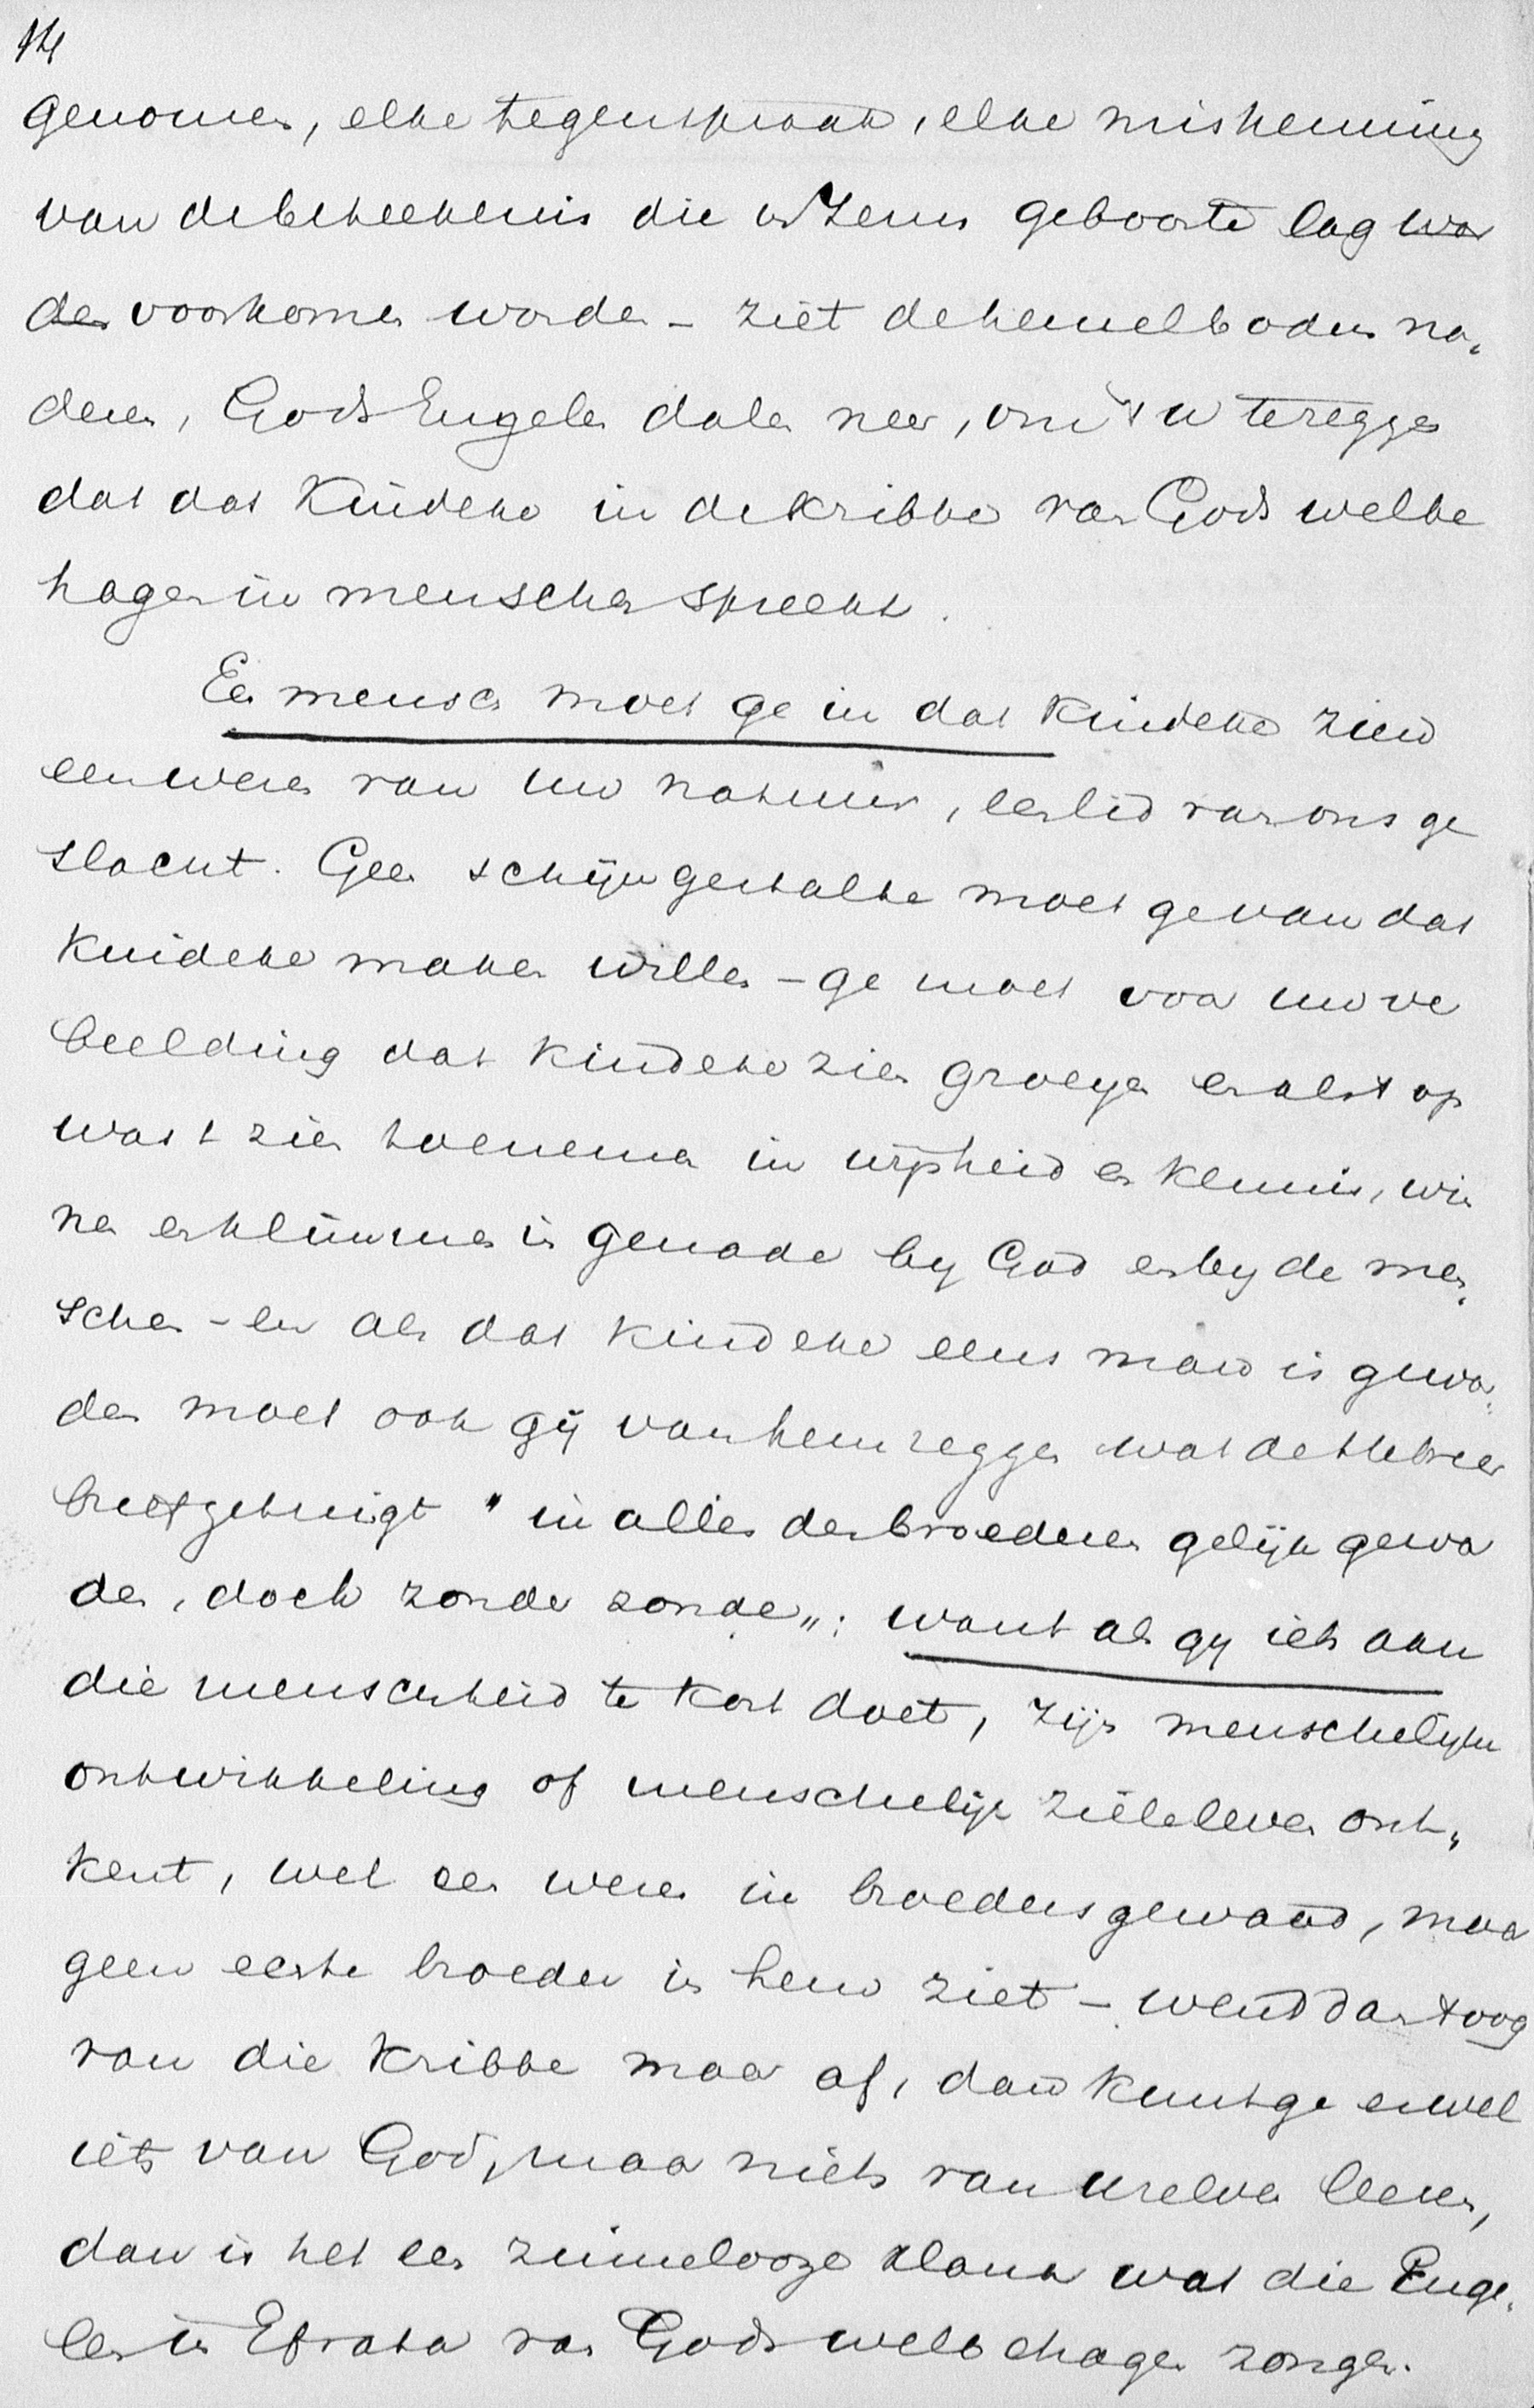 14
genomen, elke tegenspraak, elke miskenning
van de beteekenis die in Jezus geboorte lag wor
den voorkomen worden - ziet de hemelboden na„
deren, Gods Engelen dalen neer, om 't u te zeggen
dat dat Kindeke in de Kribbe van Gods welbe
hagen in menschen spreekt.
Een mensch moet ge in dat Kindeke zien
een wezen van uw natuur, een lid van ons ge
slacht. Geen schijngestalte moet ge van dat
Kindeke maken willen - ge moet voor uw ver
beelding dat Kindeke zien groeyen en als 't op
wast zien toenemen in wijsheid en kennis, win
nen en klimmen in genade by God en by de men„
schen - en als dat Kindeke eens man is gewor„
den moet ook gij van hem zeggen wat de Hebreer
brief getuigt "in alles den broederen gelijk gewor
den, doch zonder zonde„: want als gy iets aan
die menschheid te kort doet, zijn menschelijke
ontwikkeling of menschelijk zieleleven ont„
kent, wel een wezen in broedersgewaad, maar
geen echte broeder in hem ziet - wend dan 't oog
van die Kribbe maar af, dan kunt ge er wel
iets van God, maar niets van uzelven leeren,
dan is het een zinnelooze klank wat die Enge„
len in Efrata van Gods welbehagen zongen.